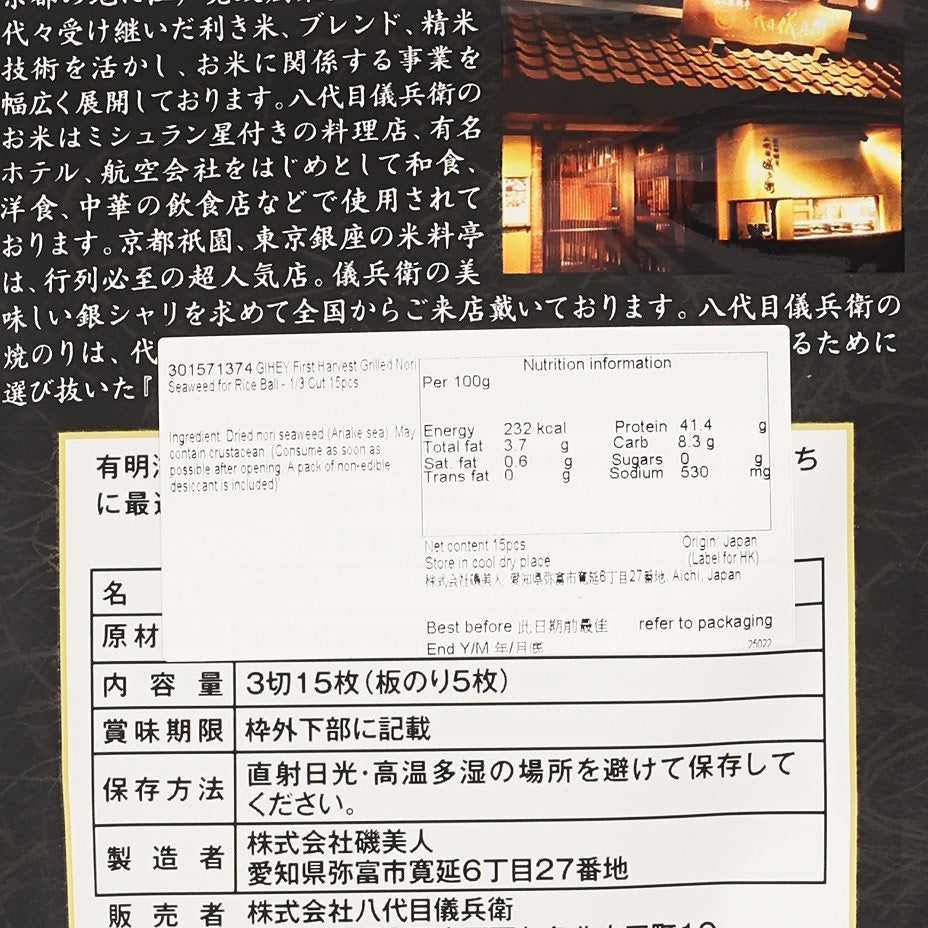 代々受け継いだ利き米、ブレンド、精米
技術を活かし、お米に関係する事業を
幅広く展開しております。八代目儀兵衛の
お米はミシュラン星付きの料理店、有名
ホテル、航空会社をはじめとして和食、
洋食、中華の飲食店などで使用されて
おります。京都祇園、東京銀座の米料亭
は、行列必至の超人気店。儀兵衛の美
味しい銀シャリを求めて全国からご来店戴いております。八代目儀兵衛の
焼のりは、代 るために
選び抜いた『
301571374 GIHEY First Harvest Grilled Nori
Seaweed for Rice Ball - 1/3 Cut 15pcs
Ingredient: Dried nori seaweed (Ariake sea). May
contain crustacean. (Consume as soon as
possible after opening. A pack of non-edible
desiccant is included)
Nutrition information
Per 100g
Energy 232 kcal Protein 41.4 g
Total fat 3.7 g Carb 8.3 g
Sat. fat 0.6 g Sugars 0 g
Trans fat 0 g Sodium 530 mg
Net content 15pcs Origin: Japan
Store in cool dry place (Label for HK)
株式会社磯美人 愛知県弥富市寛延6丁目27番地, Aichi, Japan
Best before 此日期前最佳 refer to packaging
End Y/M 年/月底 25022
有明 ち
に最
名
原材
内容量 3切15枚(板のり5枚)
賞味期限 枠外下部に記載
保存方法 直射日光・高温多湿の場所を避けて保存して
ください。
製造者 株式会社磯美人
愛知県弥富市寛延6丁目27番地
販売者 株式会社八代目儀兵衛